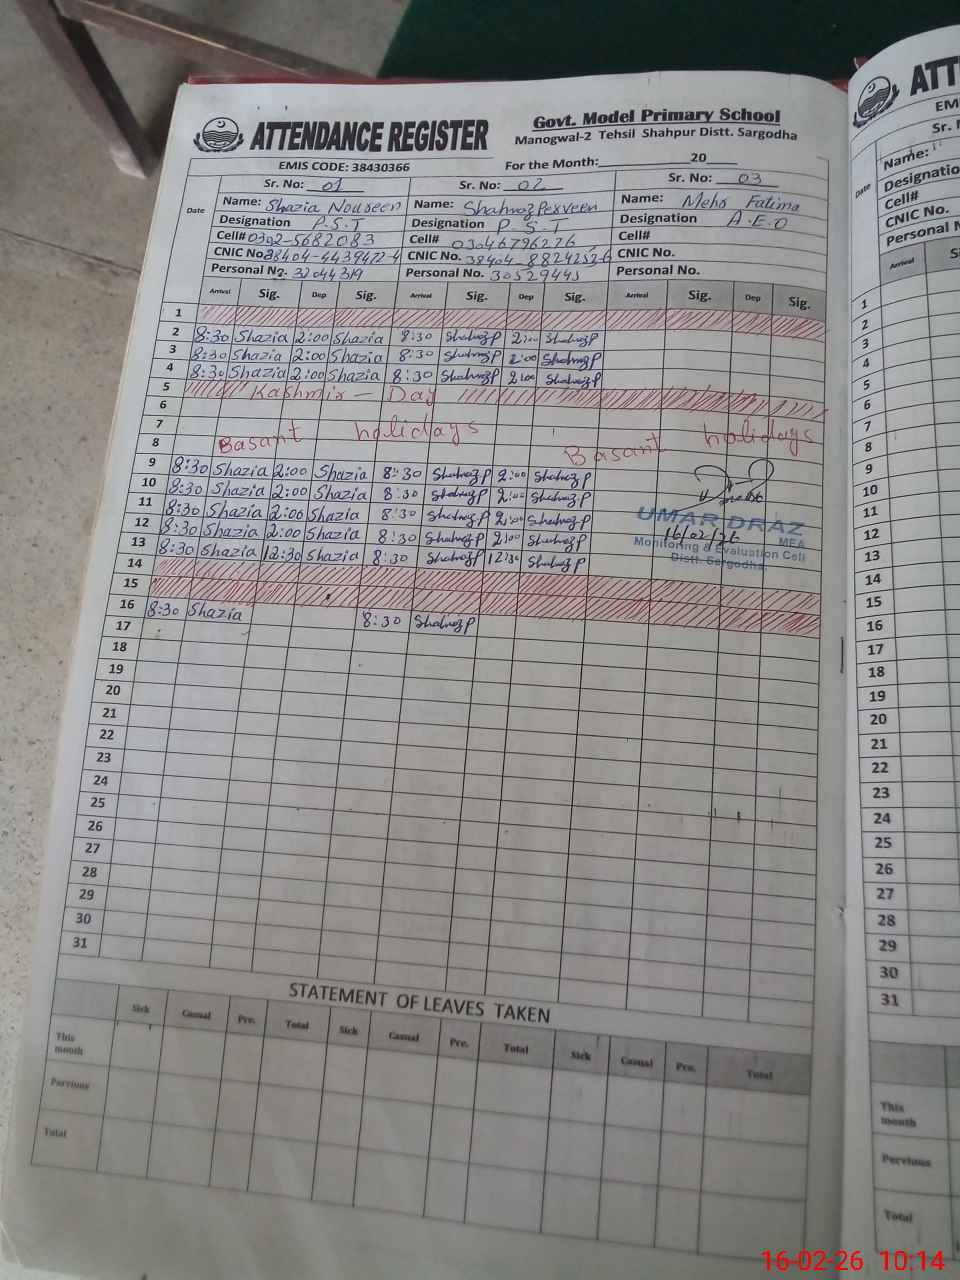 ATTENDANCE REGISTER
Govt. Model Primary School
Manogwal-2 Tehsil Shahpur Distt. Sargodha
EMIS CODE: 38430366
For the Month: 20
Sr. No: 01 Sr. No: 02 Sr. No: 03
Name: Shazia Noureen Name: Shahnaz Perveen Name: Fatima
Designation P.S.T Designation P S T Designation A.E.O
Cell# 0302-5682083 Cell# 03046796276 Cell#
CNIC No. 38404-4439472-4 CNIC No. 38404-8824252-6 CNIC No.
Personal No. 32044319 Personal No. 30529445 Personal No.
Date Arrival Sig. Dep Sig. Arrival Sig. Dep Sig. Arrival Sig. Dep Sig.
1
2 8:30 Shazia 2:00 Shazia 8:30 ShahnazP 2:00 ShahnazP
3 8:30 Shazia 2:00 Shazia 8:30 ShahnazP 2:00 ShahnazP
4 8:30 Shazia 2:00 Shazia 8:30 ShahnazP 2:00 ShahnazP
5 Kashmir - Day
6
7 Basant holidays Basant holidays
8
9 8:30 Shazia 2:00 Shazia 8:30 ShahnazP 2:00 ShahnazP
10 8:30 Shazia 2:00 Shazia 8:30 ShahnazP 2:00 ShahnazP
11 8:30 Shazia 2:00 Shazia 8:30 ShahnazP 2:00 ShahnazP
12 8:30 Shazia 2:00 Shazia 8:30 ShahnazP 2:00 ShahnazP
13 8:30 Shazia 12:30 Shazia 8:30 ShahnazP 12:30 ShahnazP
UMAR DRAZ
16/02/26
MEA
Monitoring & Evaluation Cell
Distt. Sargodha.
14
15
16 8:30 Shazia 8:30 ShahnazP
17
18
19
20
21
22
23
24
25
26
27
28
29
30
31
STATEMENT OF LEAVES TAKEN
Sick Casual Pre. Total Sick Casual Pre. Total Sick Casual Pre. Total
This month
Pervious
Total
ATT
EM
Sr. N
Name:
Designatio
Cell#
CNIC No.
Personal N
Date
Arrival S
1
2
3
4
5
6
7
8
9
10
11
12
13
14
15
16
17
18
19
20
21
22
23
24
25
26
27
28
29
30
31
This month
Pervious
Total
16-02-26 10:14